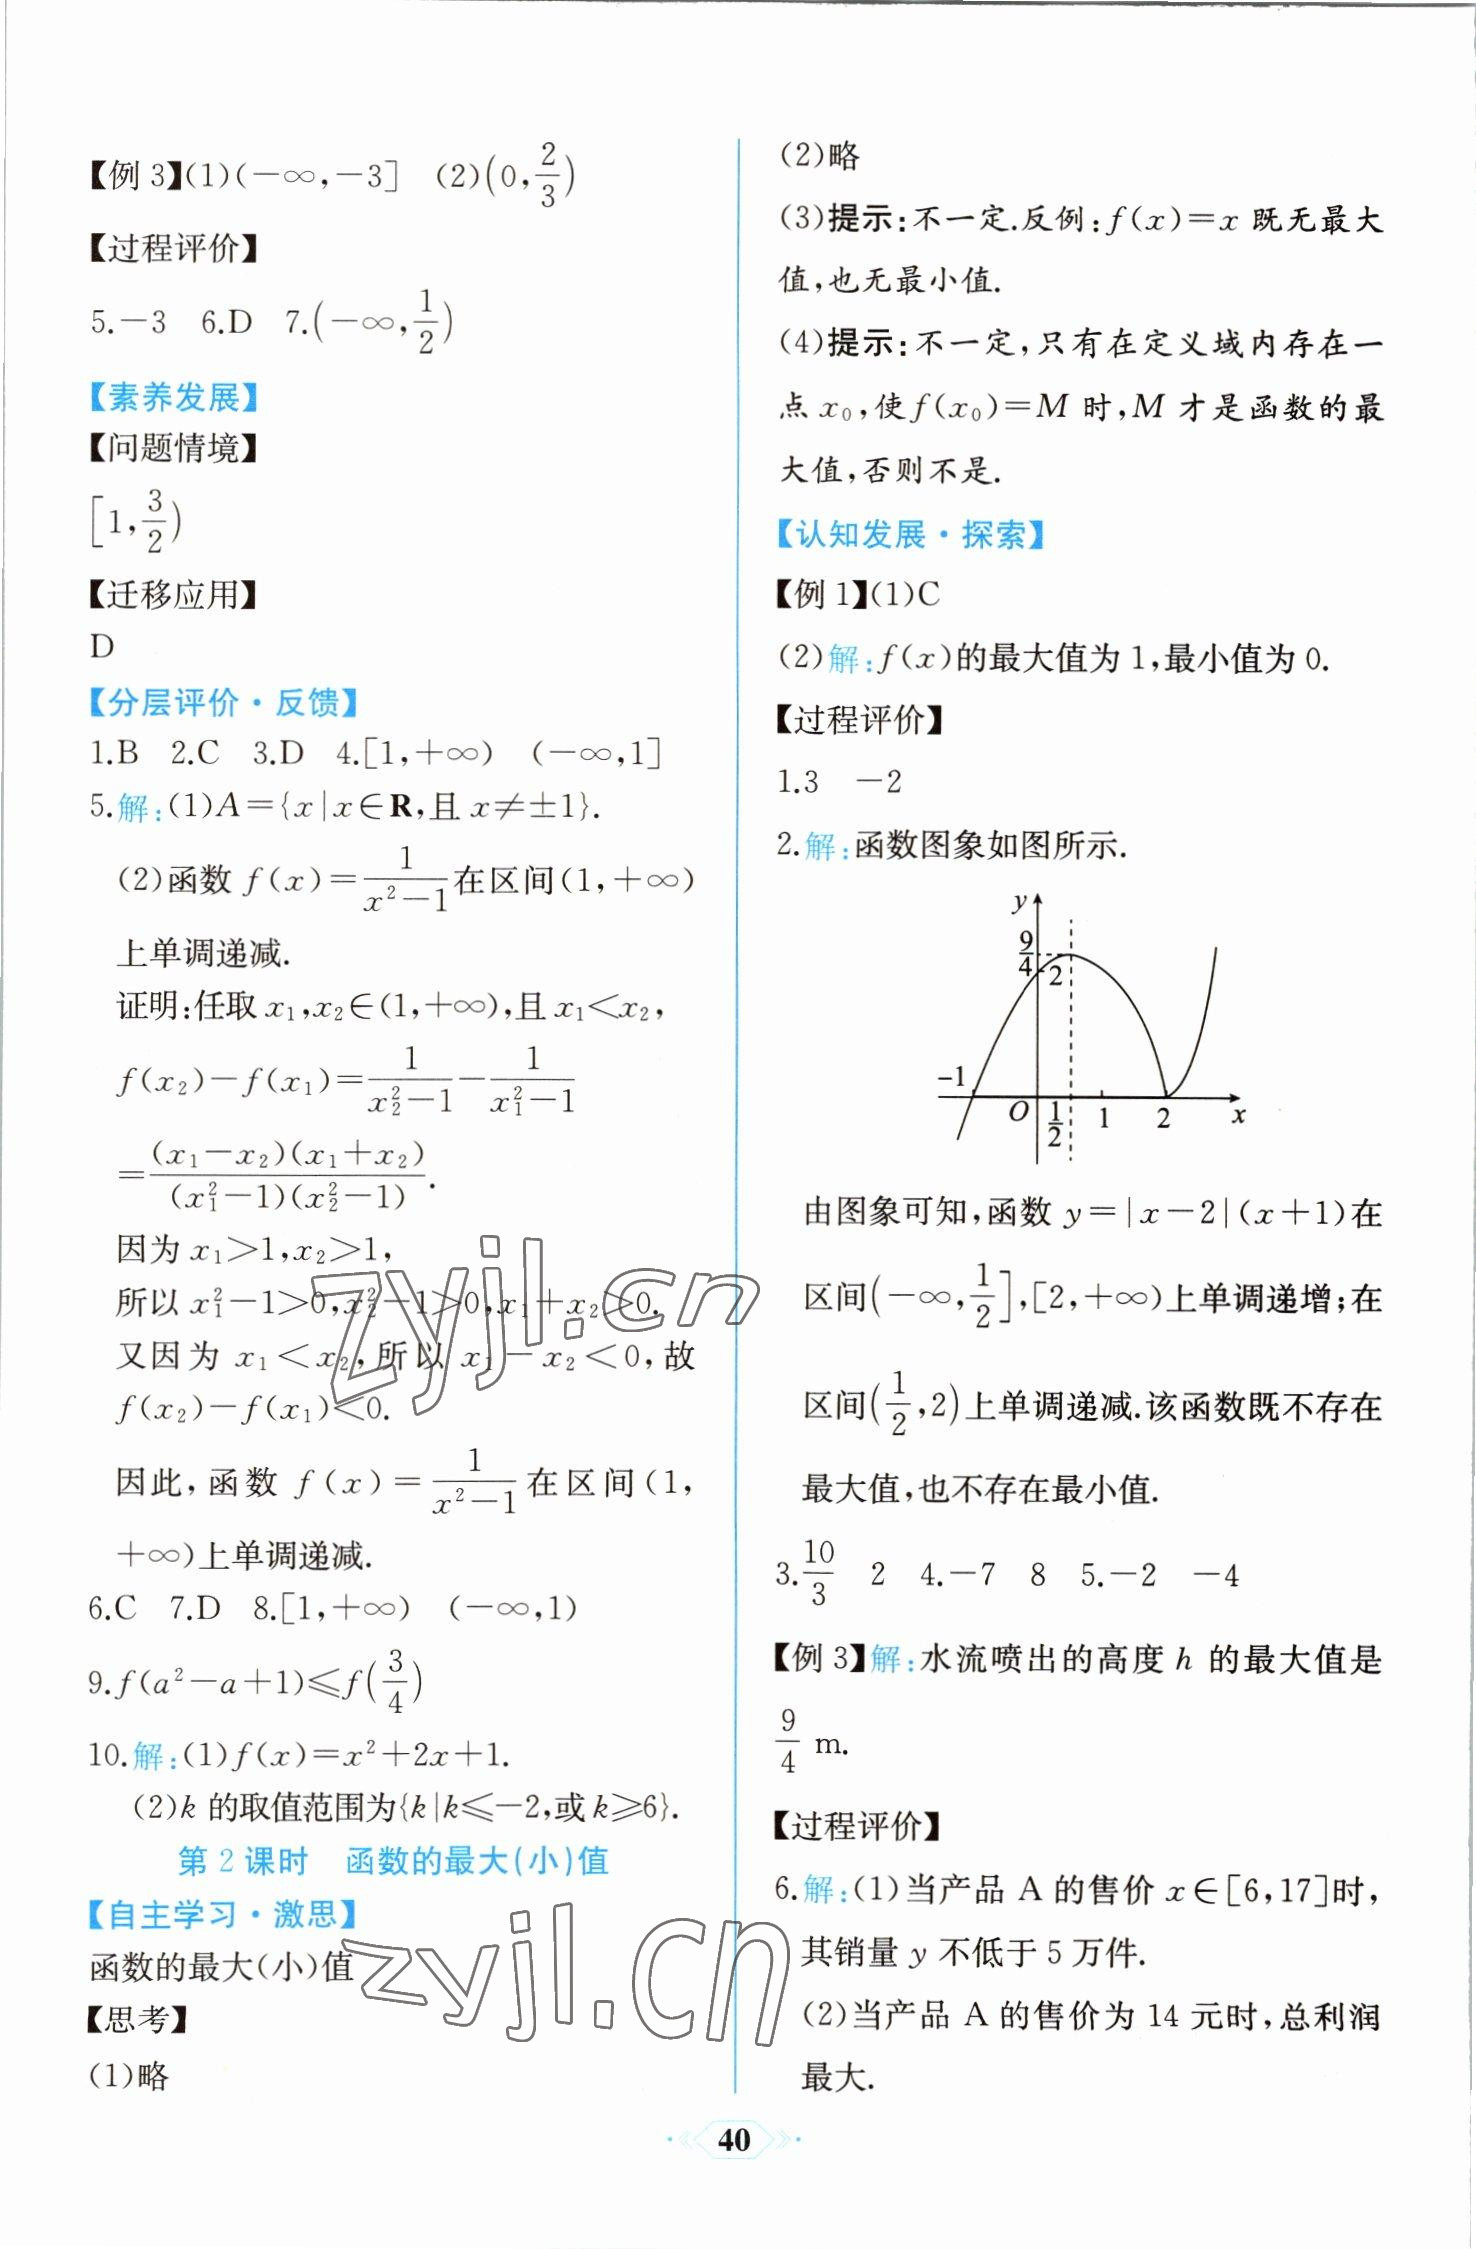 【例 3】(1)(-∞,-3]　(2)(0,2/3)
【过程评价】
5.-3　6.D　7.(-∞,1/2)
【素养发展】
【问题情境】
[1,3/2)
【迁移应用】
D
【分层评价·反馈】
1.B　2.C　3.D　4.[1,+∞)　(-∞,1]
5.解:(1)A={x|x∈R,且 x≠±1}.
(2)函数 f(x)=1/(x²-1)在区间(1,+∞)
上单调递减.
证明:任取 x₁,x₂∈(1,+∞),且 x₁<x₂,
f(x₂)-f(x₁)=1/(x₂²-1)-1/(x₁²-1)
=(x₁-x₂)(x₁+x₂)/(x₁²-1)(x₂²-1).
因为 x₁>1,x₂>1,
所以 x₁²-1>0,x₂²-1>0,x₁+x₂>0.
又因为 x₁<x₂,所以 x₁-x₂<0,故
f(x₂)-f(x₁)<0.
因此,函数 f(x)=1/(x²-1)在区间(1,
+∞)上单调递减.
6.C　7.D　8.[1,+∞)　(-∞,1)
9.f(a²-a+1)≤f(3/4)
10.解:(1)f(x)=x²+2x+1.
(2)k 的取值范围为{k|k≤-2,或 k≥6}.
第 2 课时　函数的最大(小)值
【自主学习·激思】
函数的最大(小)值
【思考】
(1)略
(2)略
(3)提示:不一定.反例:f(x)=x 既无最大
值,也无最小值.
(4)提示:不一定,只有在定义域内存在一
点 x₀,使 f(x₀)=M 时,M 才是函数的最
大值,否则不是.
【认知发展·探索】
【例 1】(1)C
(2)解:f(x)的最大值为 1,最小值为 0.
【过程评价】
1.3　-2
2.解:函数图象如图所示.
y
9/4
2
-1
O 1/2 1 2 x
由图象可知,函数 y=|x-2|(x+1)在
区间(-∞,1/2],[2,+∞)上单调递增;在
区间(1/2,2)上单调递减.该函数既不存在
最大值,也不存在最小值.
3.10/3　2　4.-7　8　5.-2　-4
【例 3】解:水流喷出的高度 h 的最大值是
9/4 m.
【过程评价】
6.解:(1)当产品 A 的售价 x∈[6,17]时,
其销量 y 不低于 5 万件.
(2)当产品 A 的售价为 14 元时,总利润
最大.
40
zyjl.cn
zyjl.cn